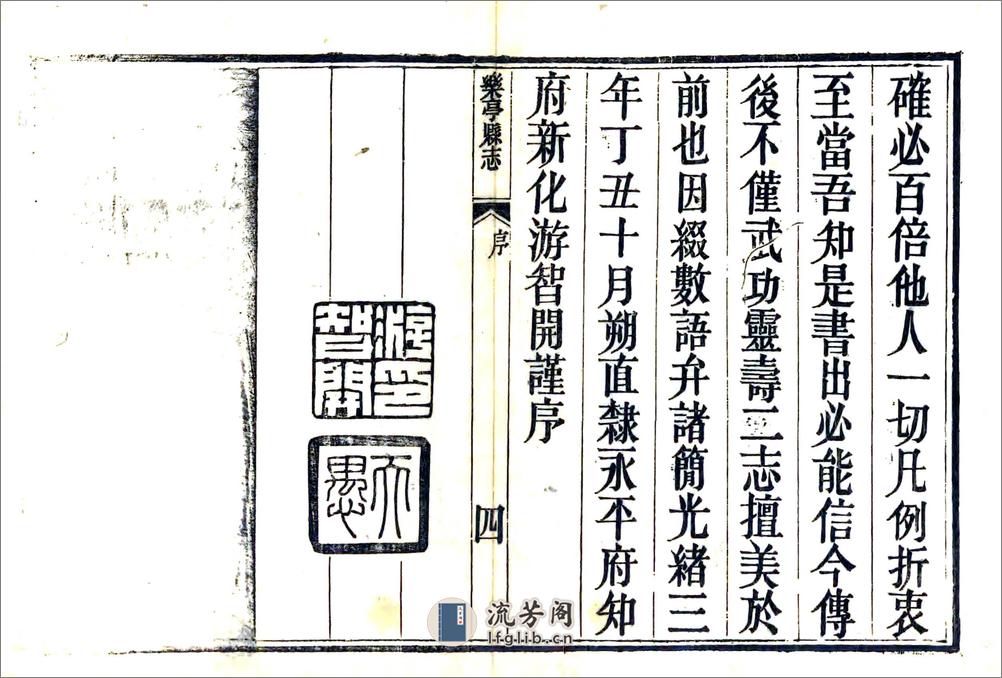 確必百倍他人一切凡例折衷
至當吾知是書出必能信今傳
後不僅武功靈壽二志擅美於
前也因綴數語弁諸簡光緒三
年丁丑十月朔直隸永平府知
府新化游智開謹序
樂亭縣志
序
四
游印
智開
天愚
流芳阁
lfglib.cn